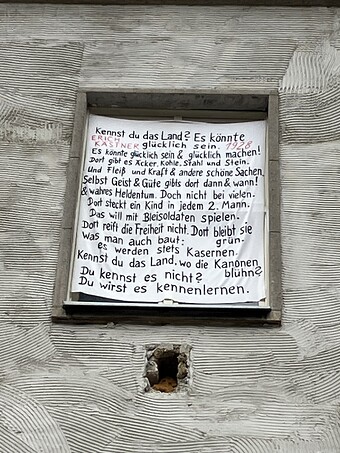 Kennst du das Land? Es könnte
ERICH KÄSTNER glücklich sein. 1928
Es könnte glücklich sein & glücklich machen!
Dort gibt es Äcker, Kohle, Stahl und Stein.
Und Fleiß und Kraft & andere schöne Sachen.
Selbst Geist & Güte gibts dort dann & wann!
& wahres Heldentum. Doch nicht bei vielen.
Dort steckt ein Kind in jedem 2. Mann.
Das will mit Bleisoldaten spielen.
Dort reift die Freiheit nicht. Dort bleibt sie
was man auch baut: grün.
es werden stets Kasernen.
Kennst du das Land, wo die Kanonen
Du kennst es nicht? blühn?
Du wirst es kennenlernen.